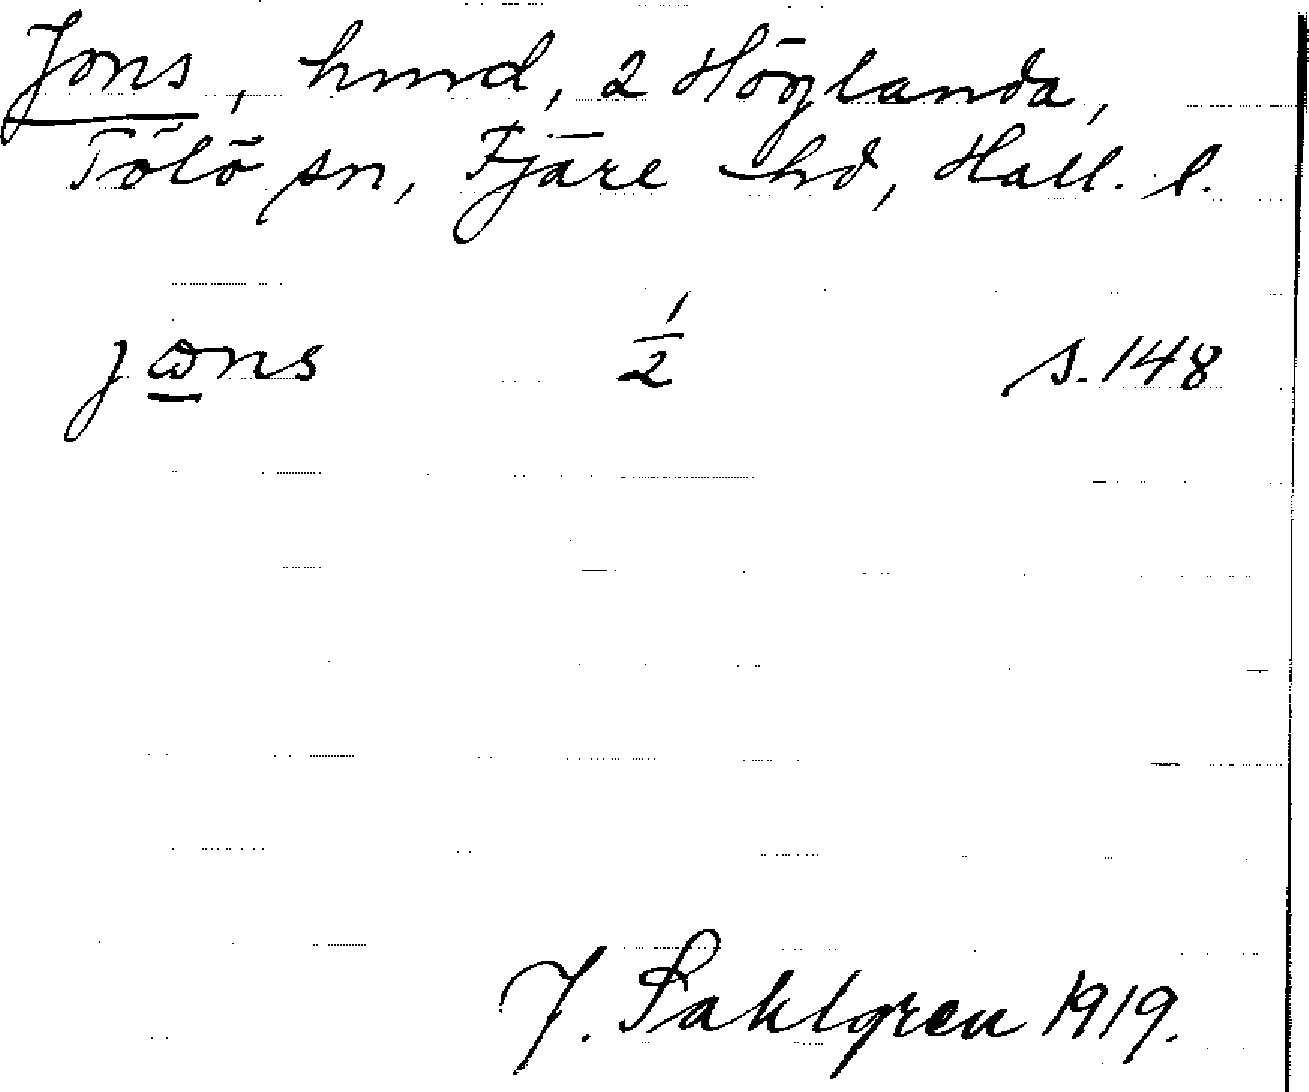 Jons, hmd, 2 Höglanda,
Tölö sn, Fjäre hd, Hall. l.
jωns 1/2 s. 148
J. Sahlgren 1919.